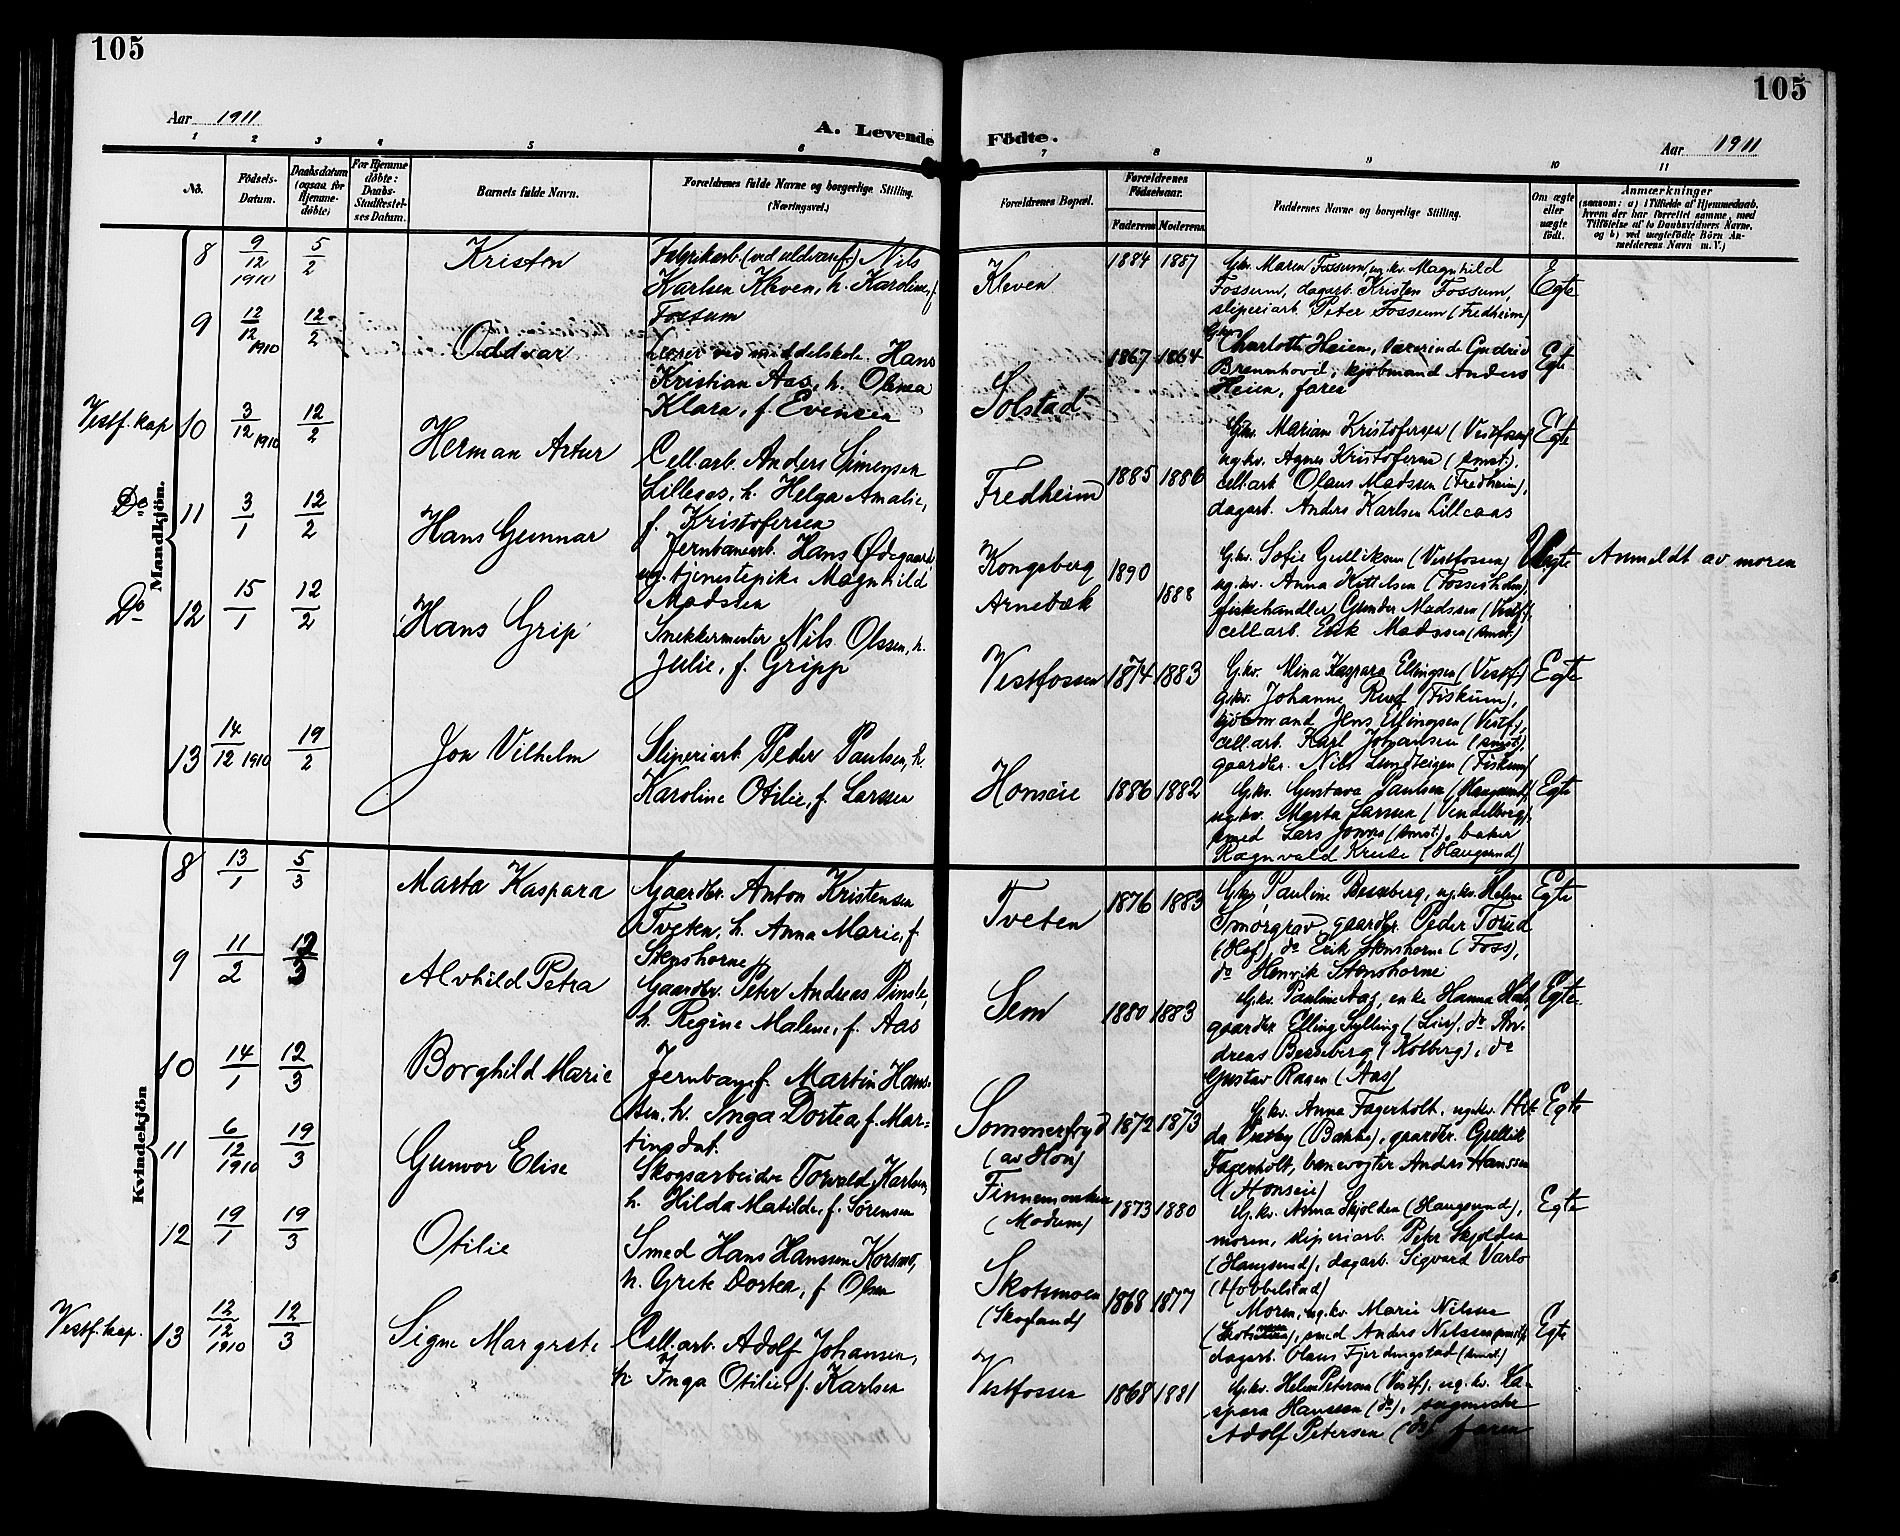 105
105
Aar 1911
A. Levende Födte.
Aar 1911
1 2 3 4 5 6 7 8 9 10 11
No.
Födsels-Datum.
Daabsdatum (ogsaa for Hjemmedöbte)
For Hjemmedöbte: Daabs-Stadfæstelses Datum.
Barnets fulde Navn.
Forældrenes fulde Navne og borgerlige Stilling.
(Næringsvei.)
Forældrenes Bopæl.
Forældrenes Födselsaar.
Faderens Moderens
Faddernes Navne og borgerlige Stilling.
Om ægte eller uægte født.
Anmærkninger
(saasom: a) i Tilfælde af Hjemmedaab, hvem der har forrettet samme, med Tilföielse af to Daabsvidners Navne, og b) ved uægtefödte Börn Anmelderens Navn m. V.)
Mandkjön.
8 9/12 1910 5/2 Kristen
Fabrikarb. (ved uldvaref.) Nils
Karlsen Kleven, h. Karoline, f.
Fossum
Kleven 1884 1887
Gkv. Maren Fossum, ugkv. Magnhild
Fossum, dagarb. Kristen Fossum,
sliperiarb. Peter Fossum (Fredheim)
Egte
9 12/12 1910 12/2 Oddvar
Lærer ved middelskole Hans
Kristian Aas, h. Olmea
Klara, f. Evensen
Solstad 1867 1864
Gkv. Charlotte Heien, lærerinde Gudrid
Brennhovd, kjöbmand Anders
Heien, faren
Egte
Vestf. kap 10 3/12 1910 12/2 Herman Artur
Cell.arb. Anders Simensen
Lilleaas, h. Helga Amalie,
f. Kristofersen
Fredheim 1885 1886
Gkv. Marian Kristofersen (Vestfossen)
ugkv. Agnes Kristofersen (smst.),
cell.arb. Olaus Madssen (Fredheim),
dagarb. Anders Karlsen Lilleaas
Egte
Do 11 3/1 12/2 Hans Gunnar
Jernbanearb. Hans Ødegaard
ug. tjenestepike Magnhild
Madssen
Kongsberg 1890
Arnebæk 1888
Gkv. Sofie Gulliksen (Vestfossen)
ug.kv. Anna Kittelsen (Fossesholm),
fiskehandler Gunder Madssen (Vestf.),
cell.arb. Erik Madssen (smst.)
Uegte Anmeldt av moren
Do 12 15/1 12/2 Hans Grip
Snekkermester Nils Olssen, h.
Julie, f. Gripp
Vestfossen 1874 1883
Gkv. Mina Kaspara Ellingsen (Vestf.)
gkv. Johanne Rud (Fiskum),
kjöbmand Jens Ellingsen (Vestf.),
cell.arb. Karl Johansen (smst.),
gaardbr. Nils Lundteigen (Fiskum)
Egte
13 14/12 1910 19/2 Jon Vilhelm
Sliperiarb. Peder Paulsen, h.
Karoline Otilie, f. Larssen
Honseie 1886 1882
Gkv. Gustava Paulsen (Haugsund)
ugkv. Marta Larssen (Vendelborg),
smed Lars Jonnes (smst.), baker
Ragnvald Kruke (Haugsund)
Egte
Kvindekjön
8 13/1 5/3 Marta Kaspara
Gaardbr. Anton Kristensen
Tveten, h. Anna Marie, f.
Stenshorne
Tveten 1876 1883
Gkv. Pauline Besseberg, ugkv. Helene
Smørgrav, gaardbr. Peder Torud
(Hof), do Erik Stenshorne (Foss),
do Henrik Stenshorne
Egte
9 11/2 12/3 Alvhild Petra
Gaardbr. Peter Andreas Pinsle,
h. Regine Malene, f. Aas
Sem 1880 1883
Gkv. Pauline Aas, enke Hanna
gaardbr. Elling Sylling (Lier), do An-
dreas Besseberg (Kolberg), do
Gustav Ragen (Aas)
Egte
10 14/1 12/3 Borghild Marie
Jernbanef. Martin Hans-
sen, h. Inga Dortea f. Mar-
tinsdat.
Sommerfryd
(av Hon) 1872 1873
Gkv. Anna Fagerholt, ugkv. Hil-
da Vestby (Bakke), gaardbr. Gullik
Fagerholt, banevogter Anders Hanssen
(Honseie)
Egte
11 6/12 1910 19/3 Gunvor Elise
Skogsarbeider Torvald Karlsen,
h. Hilda Matilde, f. Sørensen
Finnemarken
(Modum) 1873 1880
Gkv. Anna Skjolden (Haugsund),
moren, sliperiarb. Peter Skjolden
(Haugsund), dagarb. Sigvard Varlo
(Hobbelstad)
Egte
12 19/1 19/3 Otilie
Smed Hans Hanssen Korsmo,
h. Grete Dortea, f. Olsen
Skotsmoen
(Skogland) 1868 1877
Moren, ug.kv. Marie Nilsen
(Skotsmoen), smed Anders Nilssen (smst.),
dagarb. Olaus Fjerdingstad (smst.)
Egte
Vestf. kap. 13 12/12 1910 12/3 Signe Margrete
Cell.arb. Adolf Johansen,
h Inga Otilie, f. Karlsen
Vestfossen 1868 1881
Gkv. Helen Petersen (Vestf.), ug.kv. Ka-
spara Hanssen (do), sagmester
Adolf Petersen (do), faren